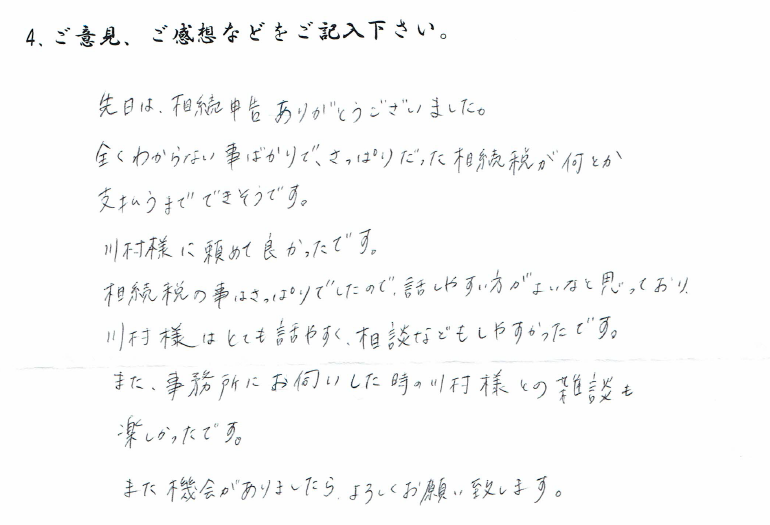 4、ご意見、ご感想などをご記入下さい。
先日は、相続申告ありがとうございました。
全くわからない事ばかりで、さっぱりだった相続税が何とか
支払うまでできそうです。
川村様に頼めて良かったです。
相続税の事はさっぱりでしたので、話しやすい方がよいなと思っており、
川村様はとても話やすく、相談などもしやすかったです。
また、事務所にお伺いした時の川村様との雑談も
楽しかったです。
また機会がありましたら、よろしくお願い致します。